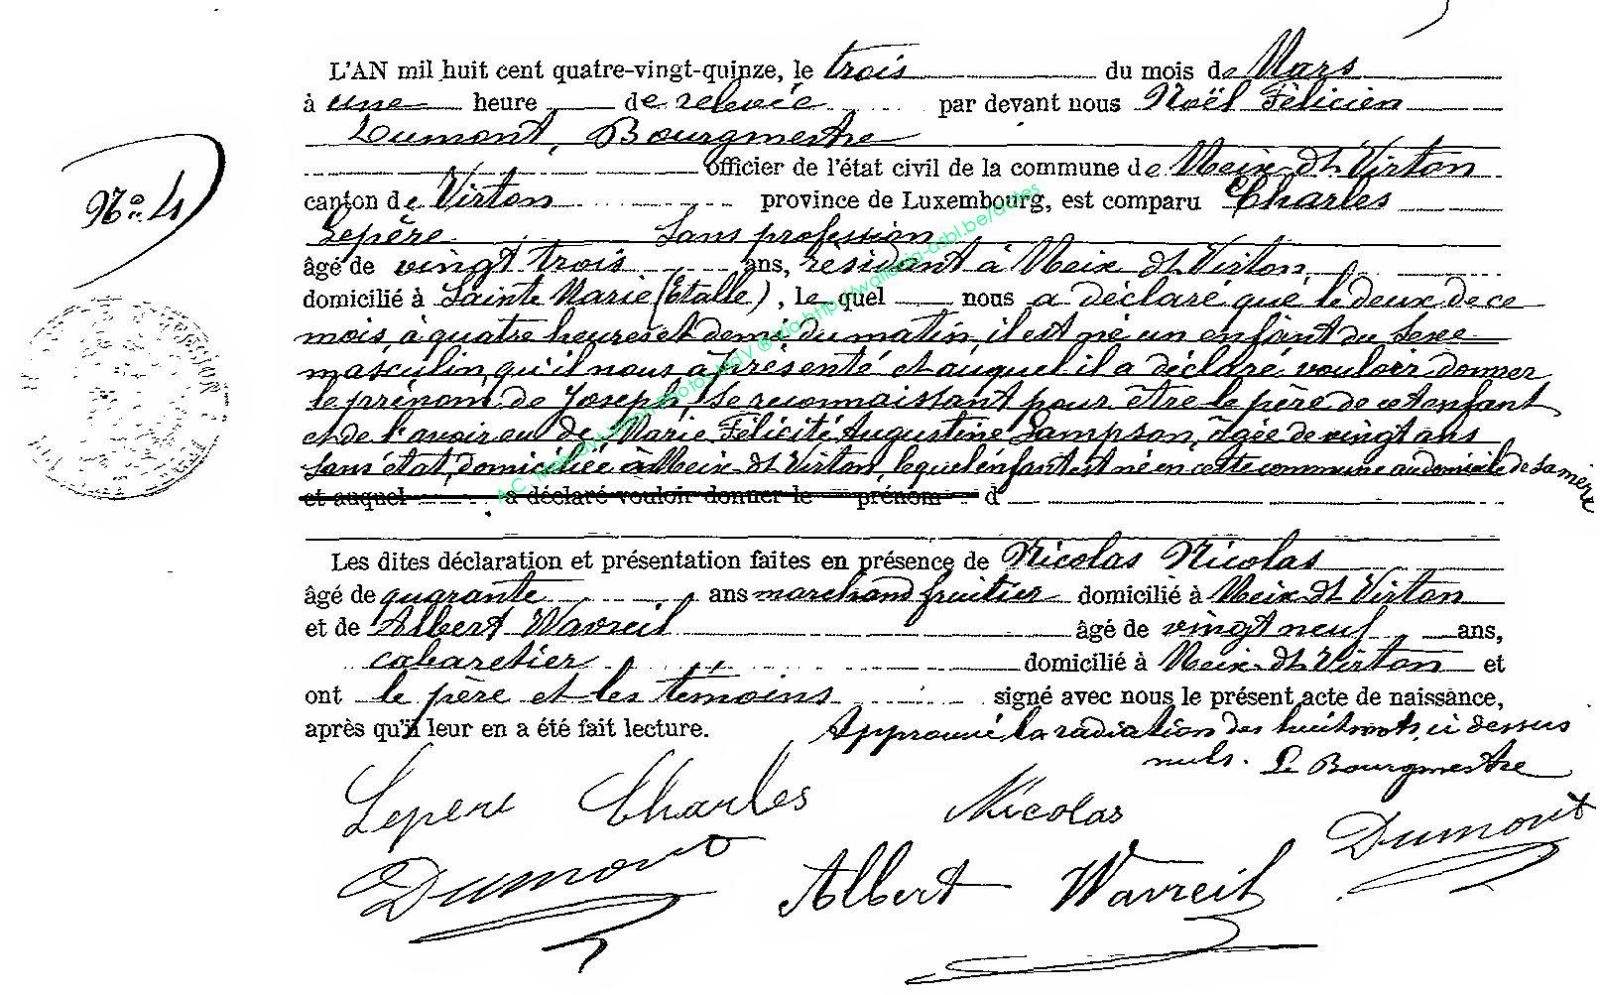 L'AN mil huit cent quatre-vingt-quinze, le trois du mois de Mars
à une heure de relevée par devant nous Noël Félicien
Dumont, Bourgmestre
officier de l'état civil de la commune de Meix dt Virton
N° 4
canton de Virton province de Luxembourg, est comparu Charles
Lepère Sans profession
âgé de vingt trois ans, résidant à Meix dt Virton,
domicilié à Sainte Marie (Etalle), le quel nous a déclaré que le deux de ce
mois, à quatre heures et demi du matin, il est né un enfant du sexe
masculin, qu'il nous a présenté et auquel il a déclaré vouloir donner
le prénom de Joseph, se reconnaissant pour être le père de cet enfant
et de l'avoir eu de Marie Félicité Augustine Sampson, âgée de vingt ans
sans état, domiciliée à Meix dt Virton, lequel enfant est né en cette commune au domicile de sa mère
et auquel a déclaré vouloir donner le prénom d
Les dites déclaration et présentation faites en présence de Nicolas Nicolas
âgé de quarante ans marchand fruitier domicilié à Meix dt Virton
et de Albert Wavreil âgé de vingt neuf ans,
cabaretier domicilié à Meix dt Virton et
ont le père et les témoins signé avec nous le présent acte de naissance,
après qu'il leur en a été fait lecture. Approuvé la radiation des huit mots ci dessus
nuls. Le Bourgmestre
Lepère Charles Nicolas Dumont
Dumont Albert Wavreil